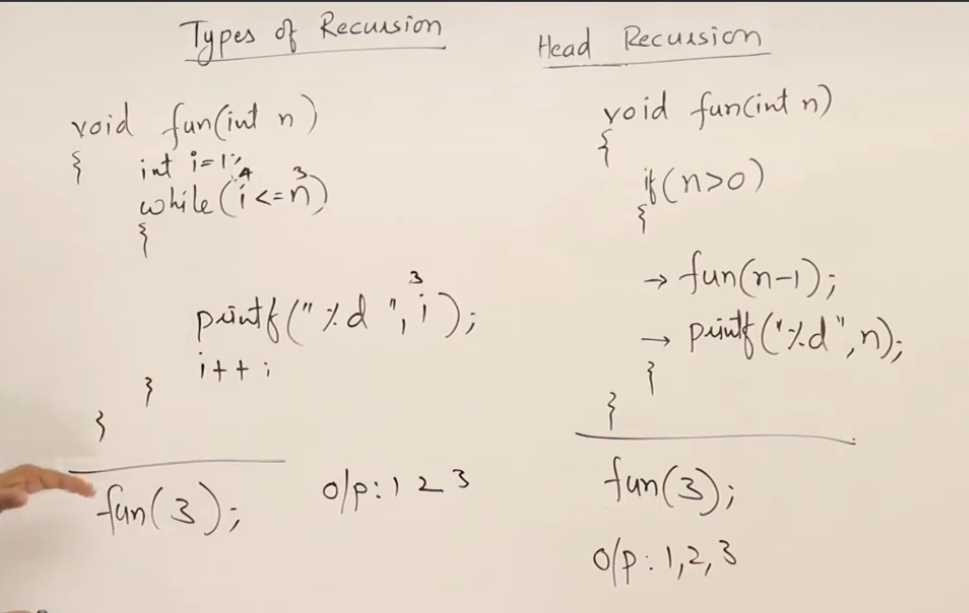 Types of Recursion
void fun(int n)
{
int i=1;
4 3
while(i<=n)
{
3
printf("%d ", i);
i++;
}
}
fun(3);
o/p: 1 2 3
Head Recursion
void fun(int n)
{
if(n>0)
{
→ fun(n-1);
→ printf("%d", n);
}
}
fun(3);
o/p: 1, 2, 3